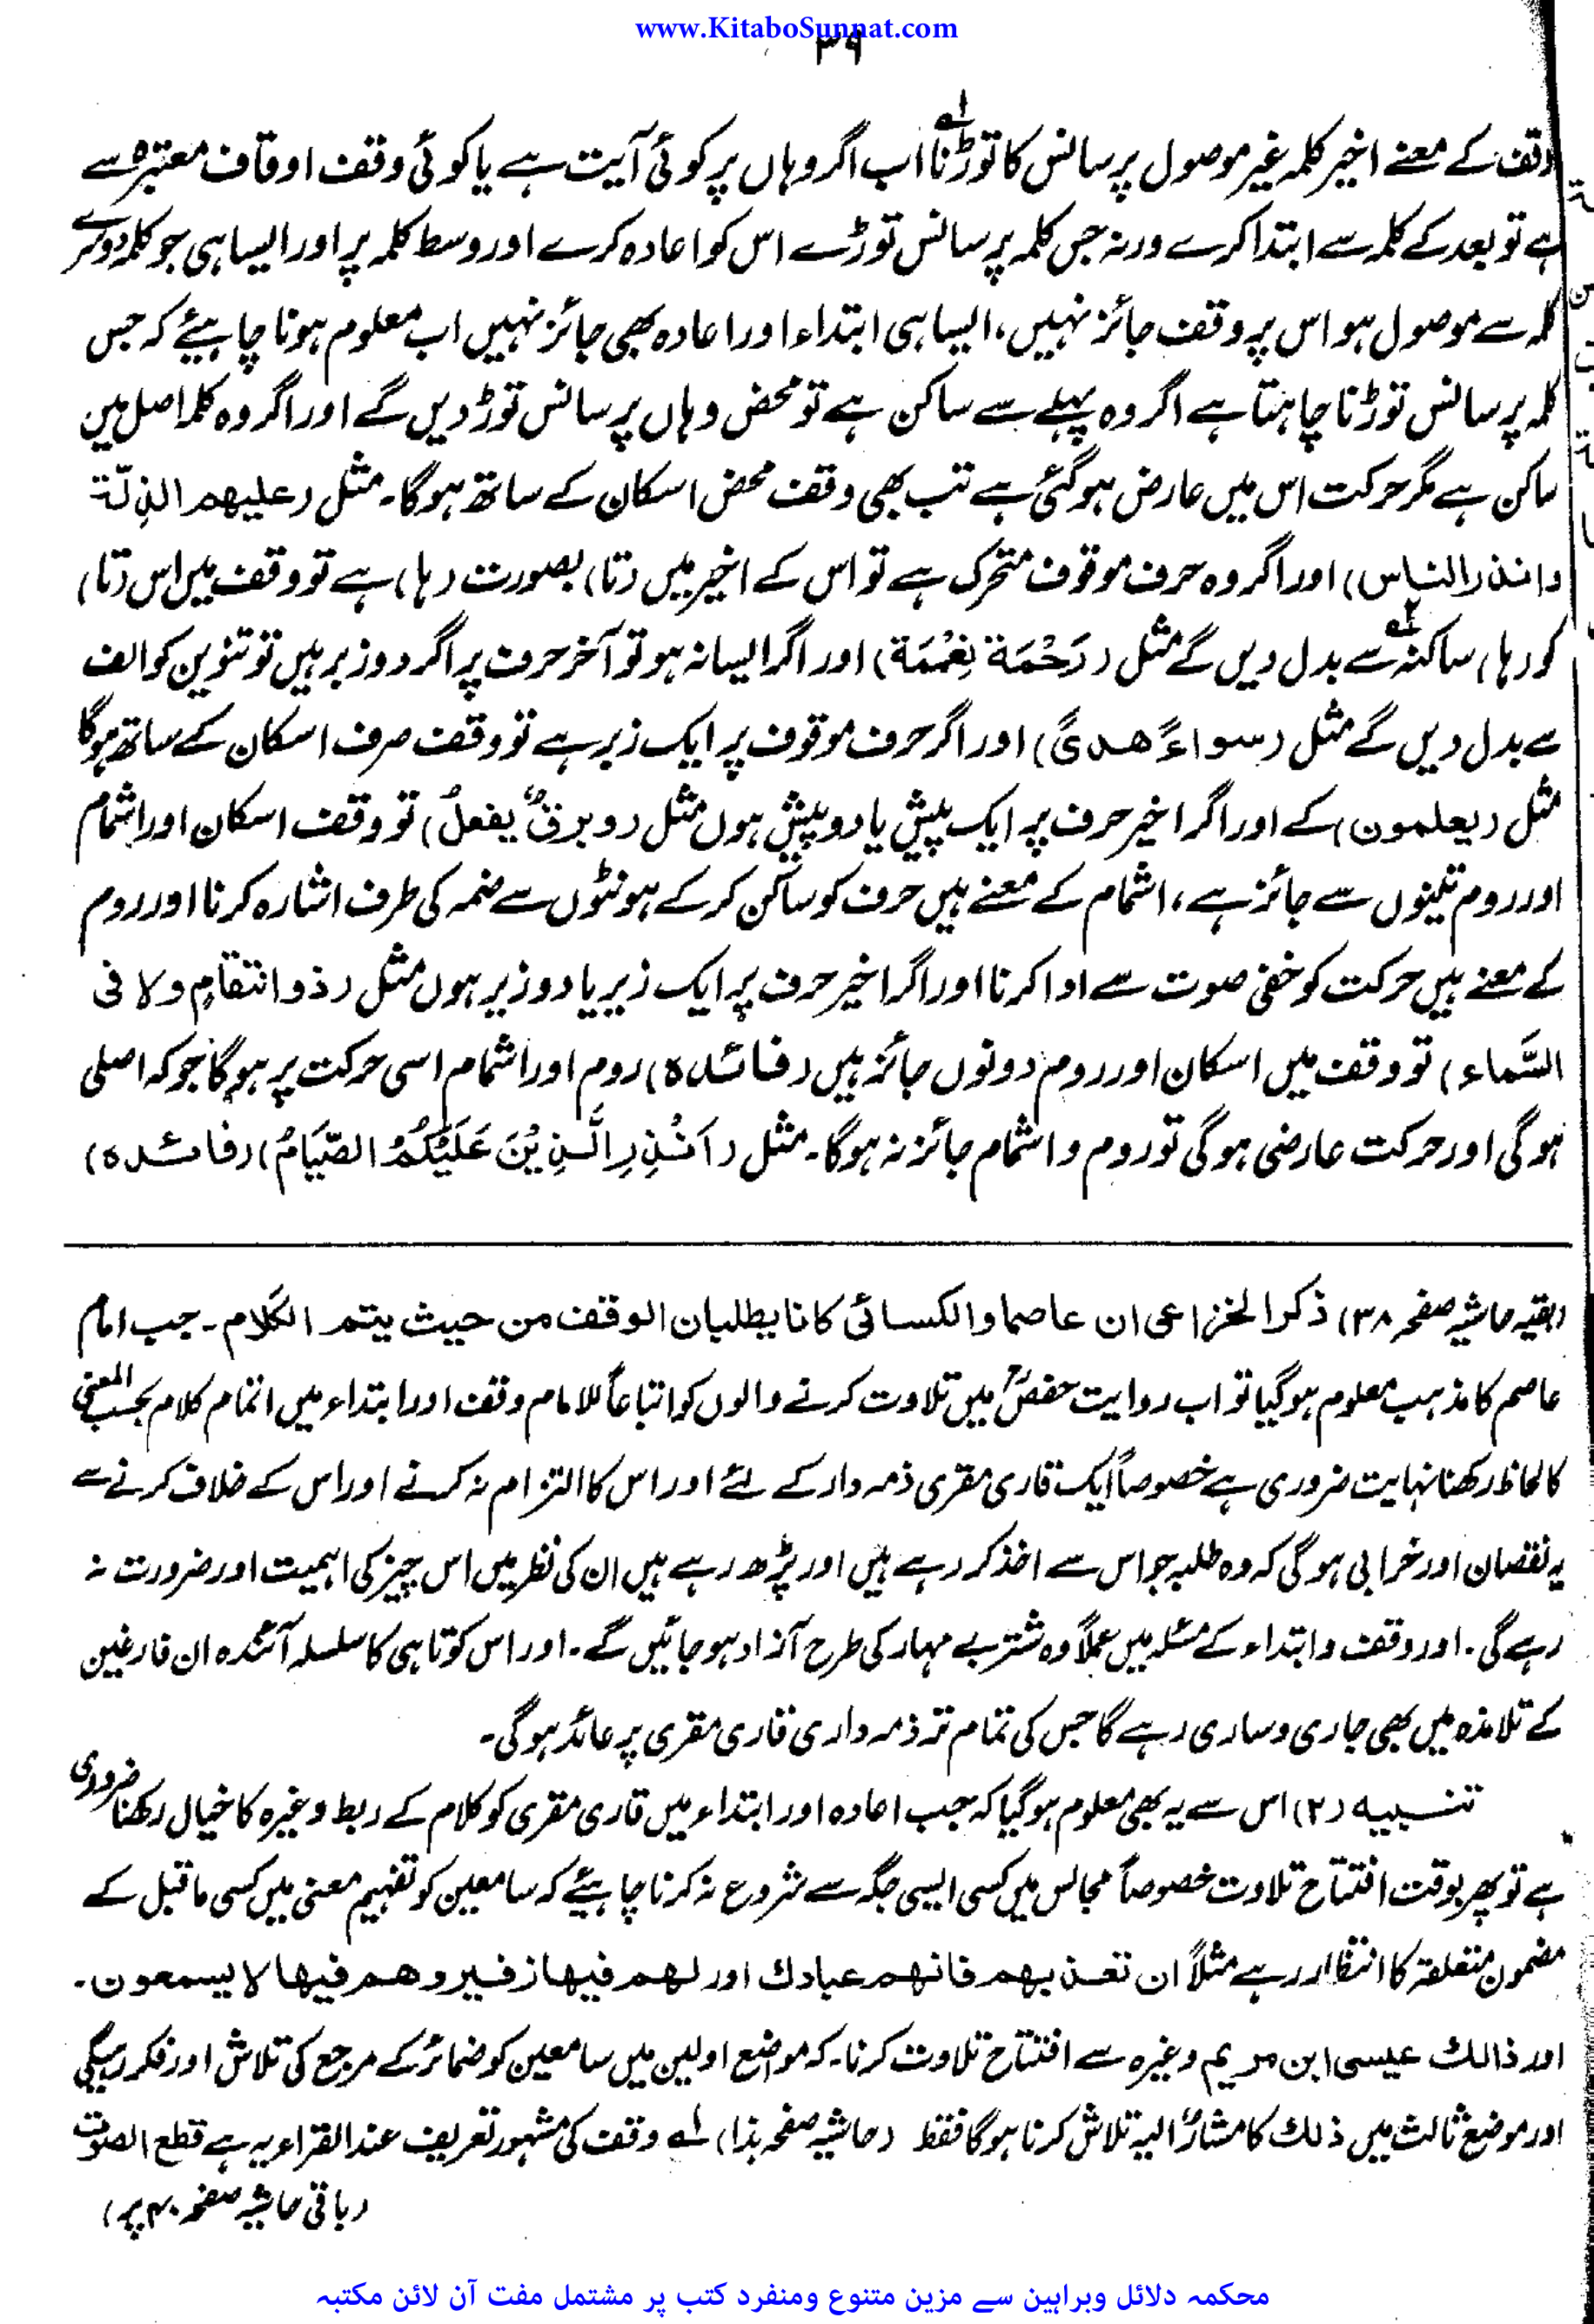 www.KitaboSunnat.com
۳۹
وقف کے معنے اخیر کلمہ غیر موصول پر سانس کا توڑنا۱؎ اب اگر وہاں پر کوئی آیت ہے یا کوئی وقف اوقاف معتبرہ سے
ہے تو بعد کے کلمہ سے ابتدا کرے ورنہ جس کلمہ پر سانس توڑے اس کو اعادہ کرے اور وسط کلمہ پر اور ایسا ہی جو کلمہ دوسرے
کلمہ سے موصول ہو اس پر وقف جائز نہیں، ایسا ہی ابتداء اور اعادہ بھی جائز نہیں اب معلوم ہونا چاہیئے کہ جس
کلمہ پر سانس توڑنا چاہتا ہے اگر وہ پہلے سے ساکن ہے تو محض وہاں پر سانس توڑ دیں گے اور اگر وہ کلمہ اصل میں
ساکن ہے مگر حرکت اس میں عارض ہو گئی ہے تب بھی وقف محض اسکان کے ساتھ ہوگا۔ مثل (علیهم الذلّة
وانذر الناس) اور اگر وہ حرف موقوف متحرک ہے تو اس کے اخیر میں (تا) بصورت (ہا) ہے تو وقف میں اس (تا)
کو (ہا) ساکنہ۲؎ سے بدل دیں گے مثل (رَحْمَة نِعْمَة) اور اگر ایسا نہ ہو تو آخر حرف پر اگر دو زبر ہیں تو تنوین کو الف
سے بدل دیں گے مثل (سواءً هدىً) اور اگر حرف موقوف پر ایک زبر ہے تو وقف صرف اسکان کے ساتھ ہوگا
مثل (يعلمون) کے اور اگر اخیر حرف پر ایک پیش یا دو پیش ہوں مثل (وبرقٌ يفعلُ) تو وقف اسکان اور اشمام
اور روم تینوں سے جائز ہے، اشمام کے معنے ہیں حرف کو ساکن کر کے ہونٹوں سے ضمہ کی طرف اشارہ کرنا اور روم
کے معنے ہیں حرکت کو خفی صوت سے ادا کرنا اور اگر اخیر حرف پر ایک زیر یا دو زیر ہوں مثل (ذو انتقامٍ ولا فی
السَّماء) تو وقف میں اسکان اور روم دونوں جائز ہیں (فائدہ) روم اور اشمام اسی حرکت پر ہوگا جو کہ اصلی
ہوگی اور حرکت عارضی ہوگی تو روم و اشمام جائز نہ ہوگا۔ مثل (اَنْذِرِ الَّذِيْنَ عَلَيْكُمُ الصِّيَامُ) (فائدہ)
(بقیہ حاشیہ صفحہ ۳۸) ذكر الخزاعى ان عاصما والكسائى كانا يطلبان الوقف من حيث يتم الكلام۔ جب امام
عاصم کا مذہب معلوم ہوگیا تو اب روایت حفصؒ میں تلاوت کرنے والوں کو اتباعاً للامام وقف اور ابتداء میں اتمام کلام بحسب المعنی
کا لحاظ رکھنا نہایت ضروری ہے خصوصاً ایک قاری مقری ذمہ دار کے لئے اور اس کا التزام نہ کرنے اور اس کے خلاف کرنے سے
یہ نقصان اور خرابی ہوگی کہ وہ طلبہ جو اس سے اخذ کر رہے ہیں اور پڑھ رہے ہیں ان کی نظر میں اس چیز کی اہمیت اور ضرورت نہ
رہے گی۔ اور وقف و ابتداء کے مسئلہ میں عملاً وہ شتر بے مہار کی طرح آزاد ہو جائیں گے۔ اور اس کوتاہی کا سلسلہ آئندہ ان فارغین
کے تلامذہ میں بھی جاری و ساری رہے گا جس کی تمام تر ذمہ داری قاری مقری پر عائد ہوگی۔
تنبیہ (۲) اس سے یہ بھی معلوم ہوگیا کہ جب اعادہ اور ابتداء میں قاری مقری کو کلام کے ربط وغیرہ کا خیال رکھنا ضروری
ہے تو پھر بوقت افتتاح تلاوت خصوصاً مجالس میں کسی ایسی جگہ سے شروع نہ کرنا چاہیئے کہ سامعین کو تفہیم معنی میں کسی ماقبل کے
مضمون متعلقہ کا انتظار رہے مثلاً ان تعذبهم فانهم عبادك اور لهم فيها زفير وهم فيها لا يسمعون۔
اور ذالك عيسى ابن مريم وغیرہ سے افتتاح تلاوت کرنا۔ کہ مواضع اولین میں سامعین کو ضمائر کے مرجع کی تلاش اور فکر رہیگی
اور موضع ثالث میں ذلك کا مشارٌ الیہ تلاش کرنا ہوگا فقط (حاشیہ صفحہ ہذا) ۱؎ وقف کی مشہور تعریف عند القراء یہ ہے قطع الصوت
(باقی حاشیہ صفحہ ۴۰ پر)
محکمہ دلائل وبراہین سے مزین متنوع ومنفرد کتب پر مشتمل مفت آن لائن مکتبہ